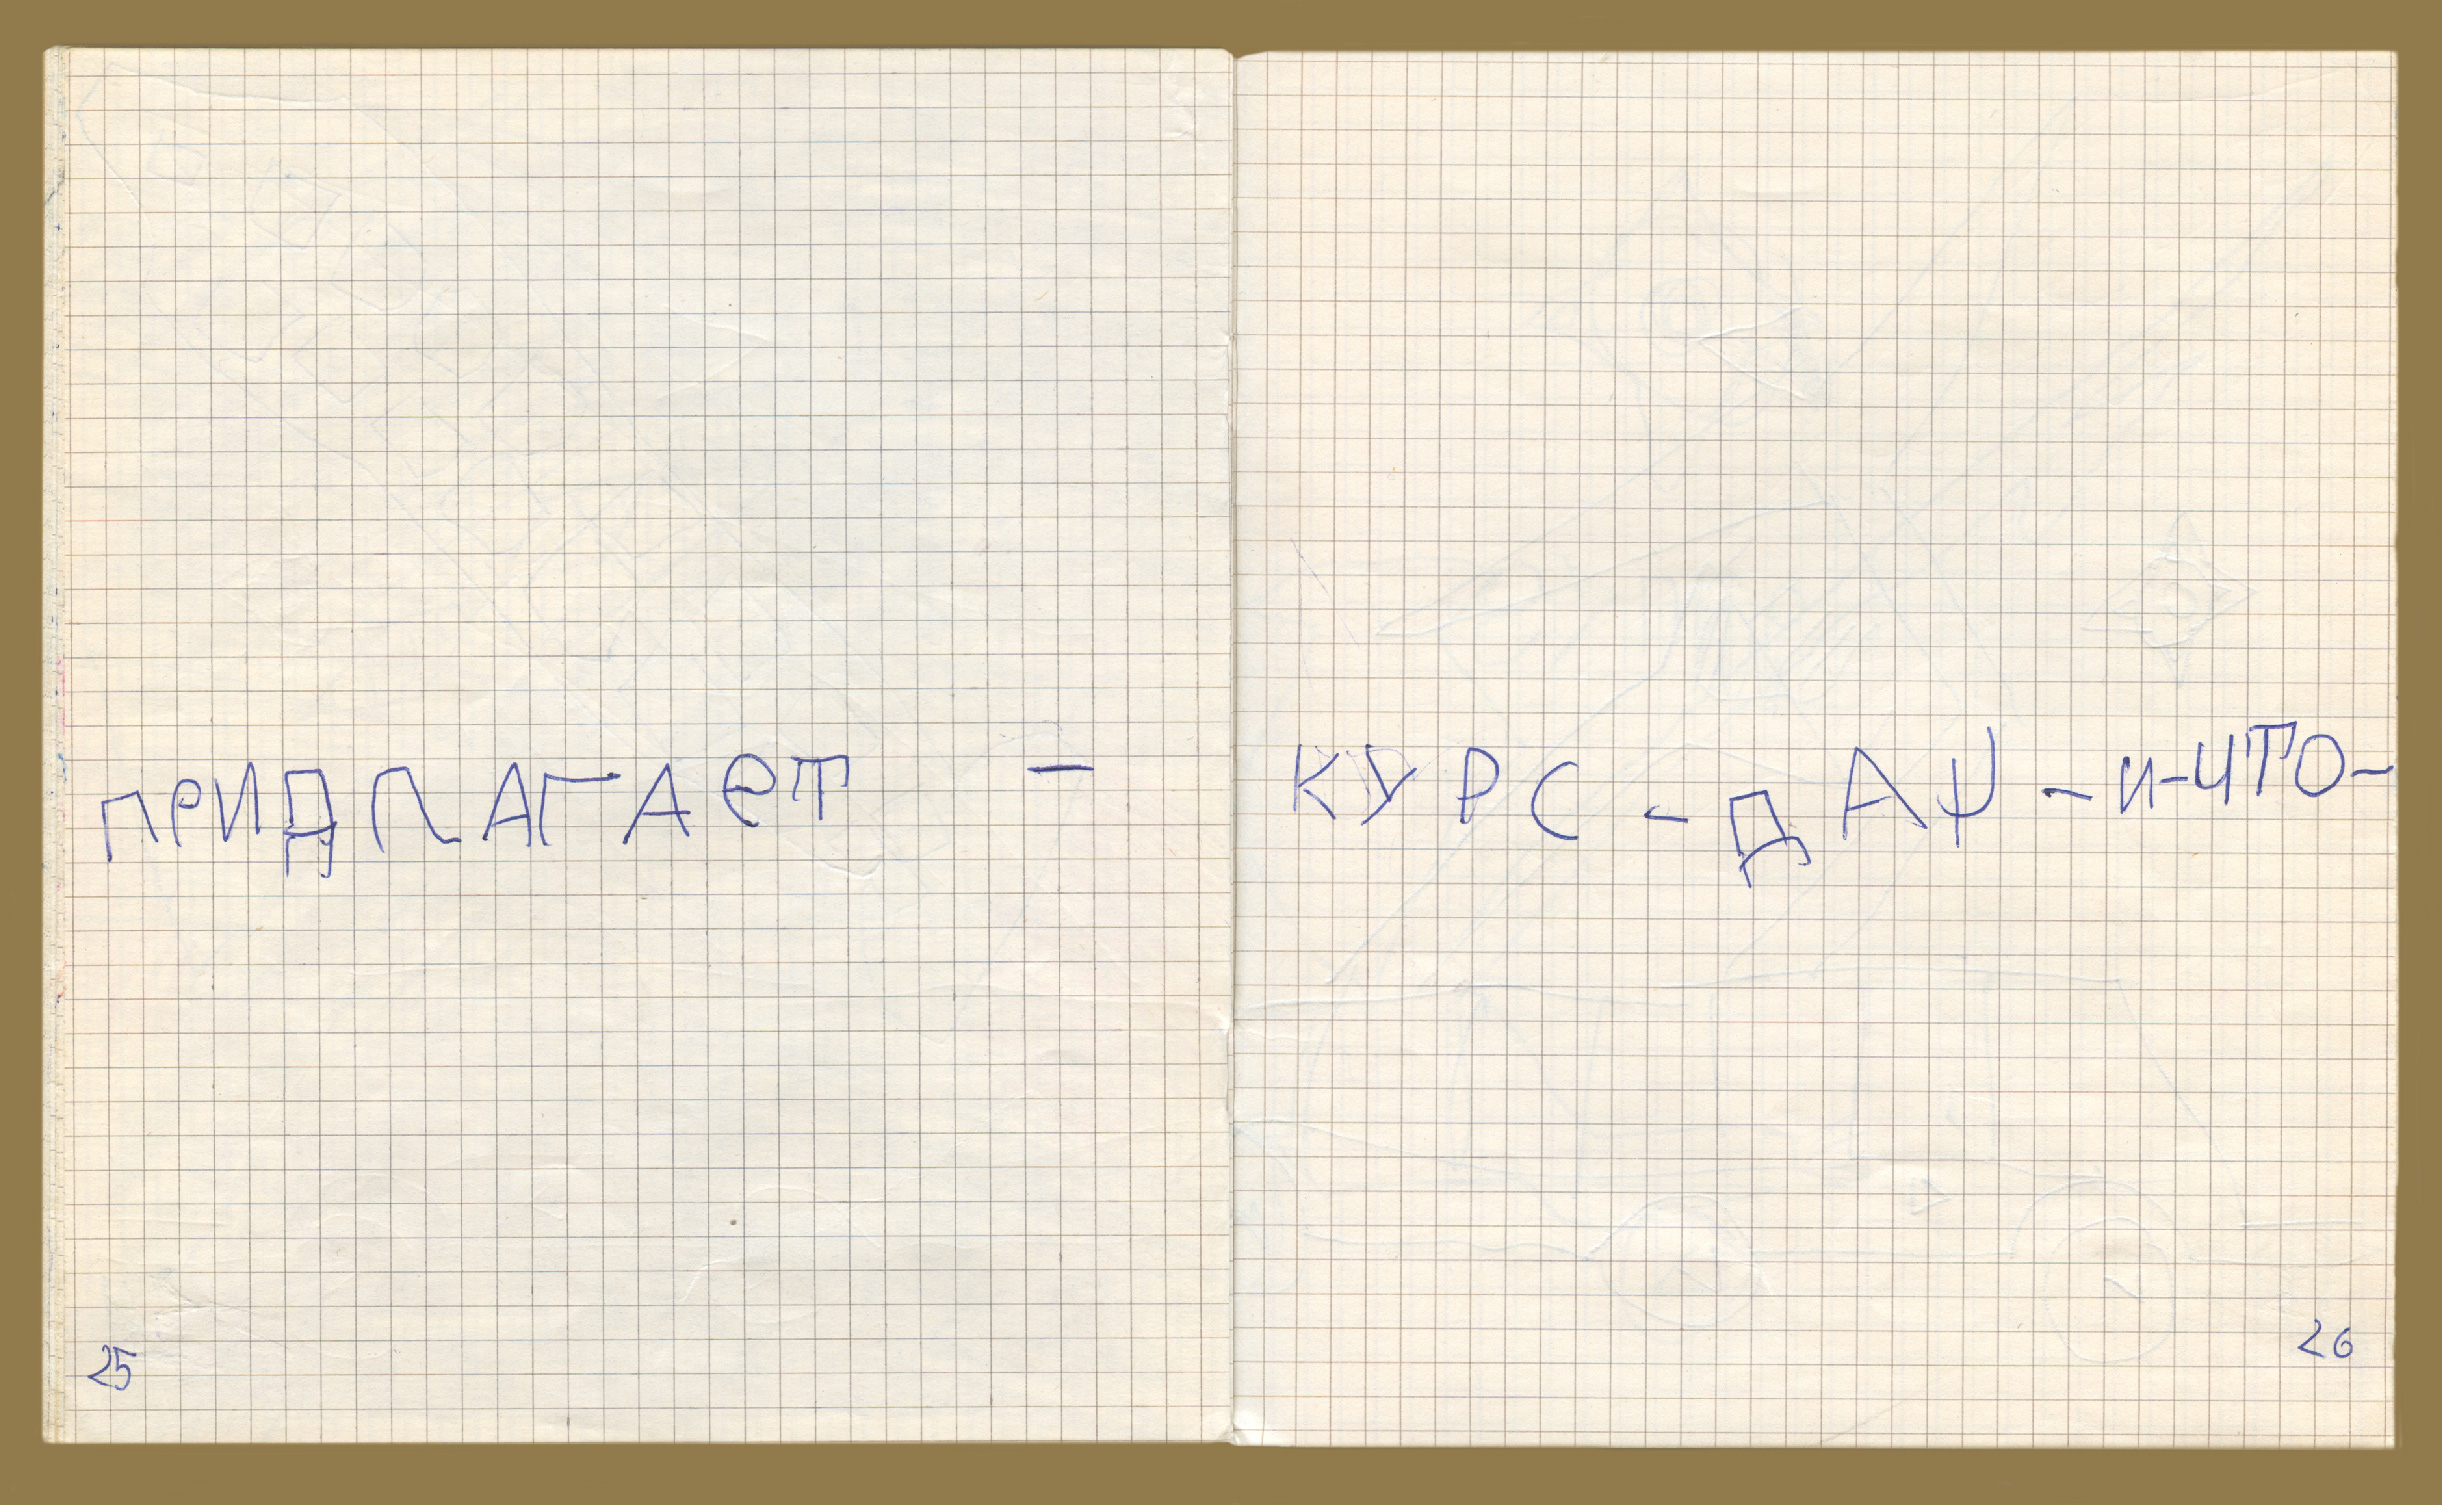 ПРИДЛАГАЕТ —
КУРС - ДАЧ - И-ЧТО-
25
26